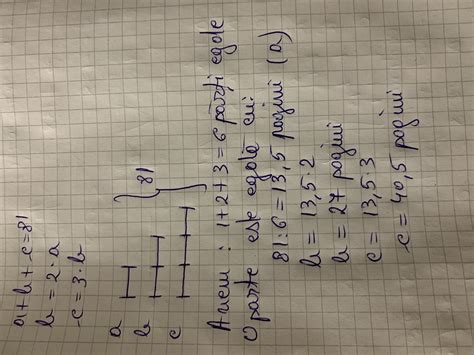 a+b+c=81
b=2·a
c=3·b
a
b
81
c
Avem : 1+2+3=6 părți egale
O parte este egală cu:
81:6=13,5 pagini (a)
b=13,5·2
b=27 pagini
c=13,5·3
c=40,5 pagini